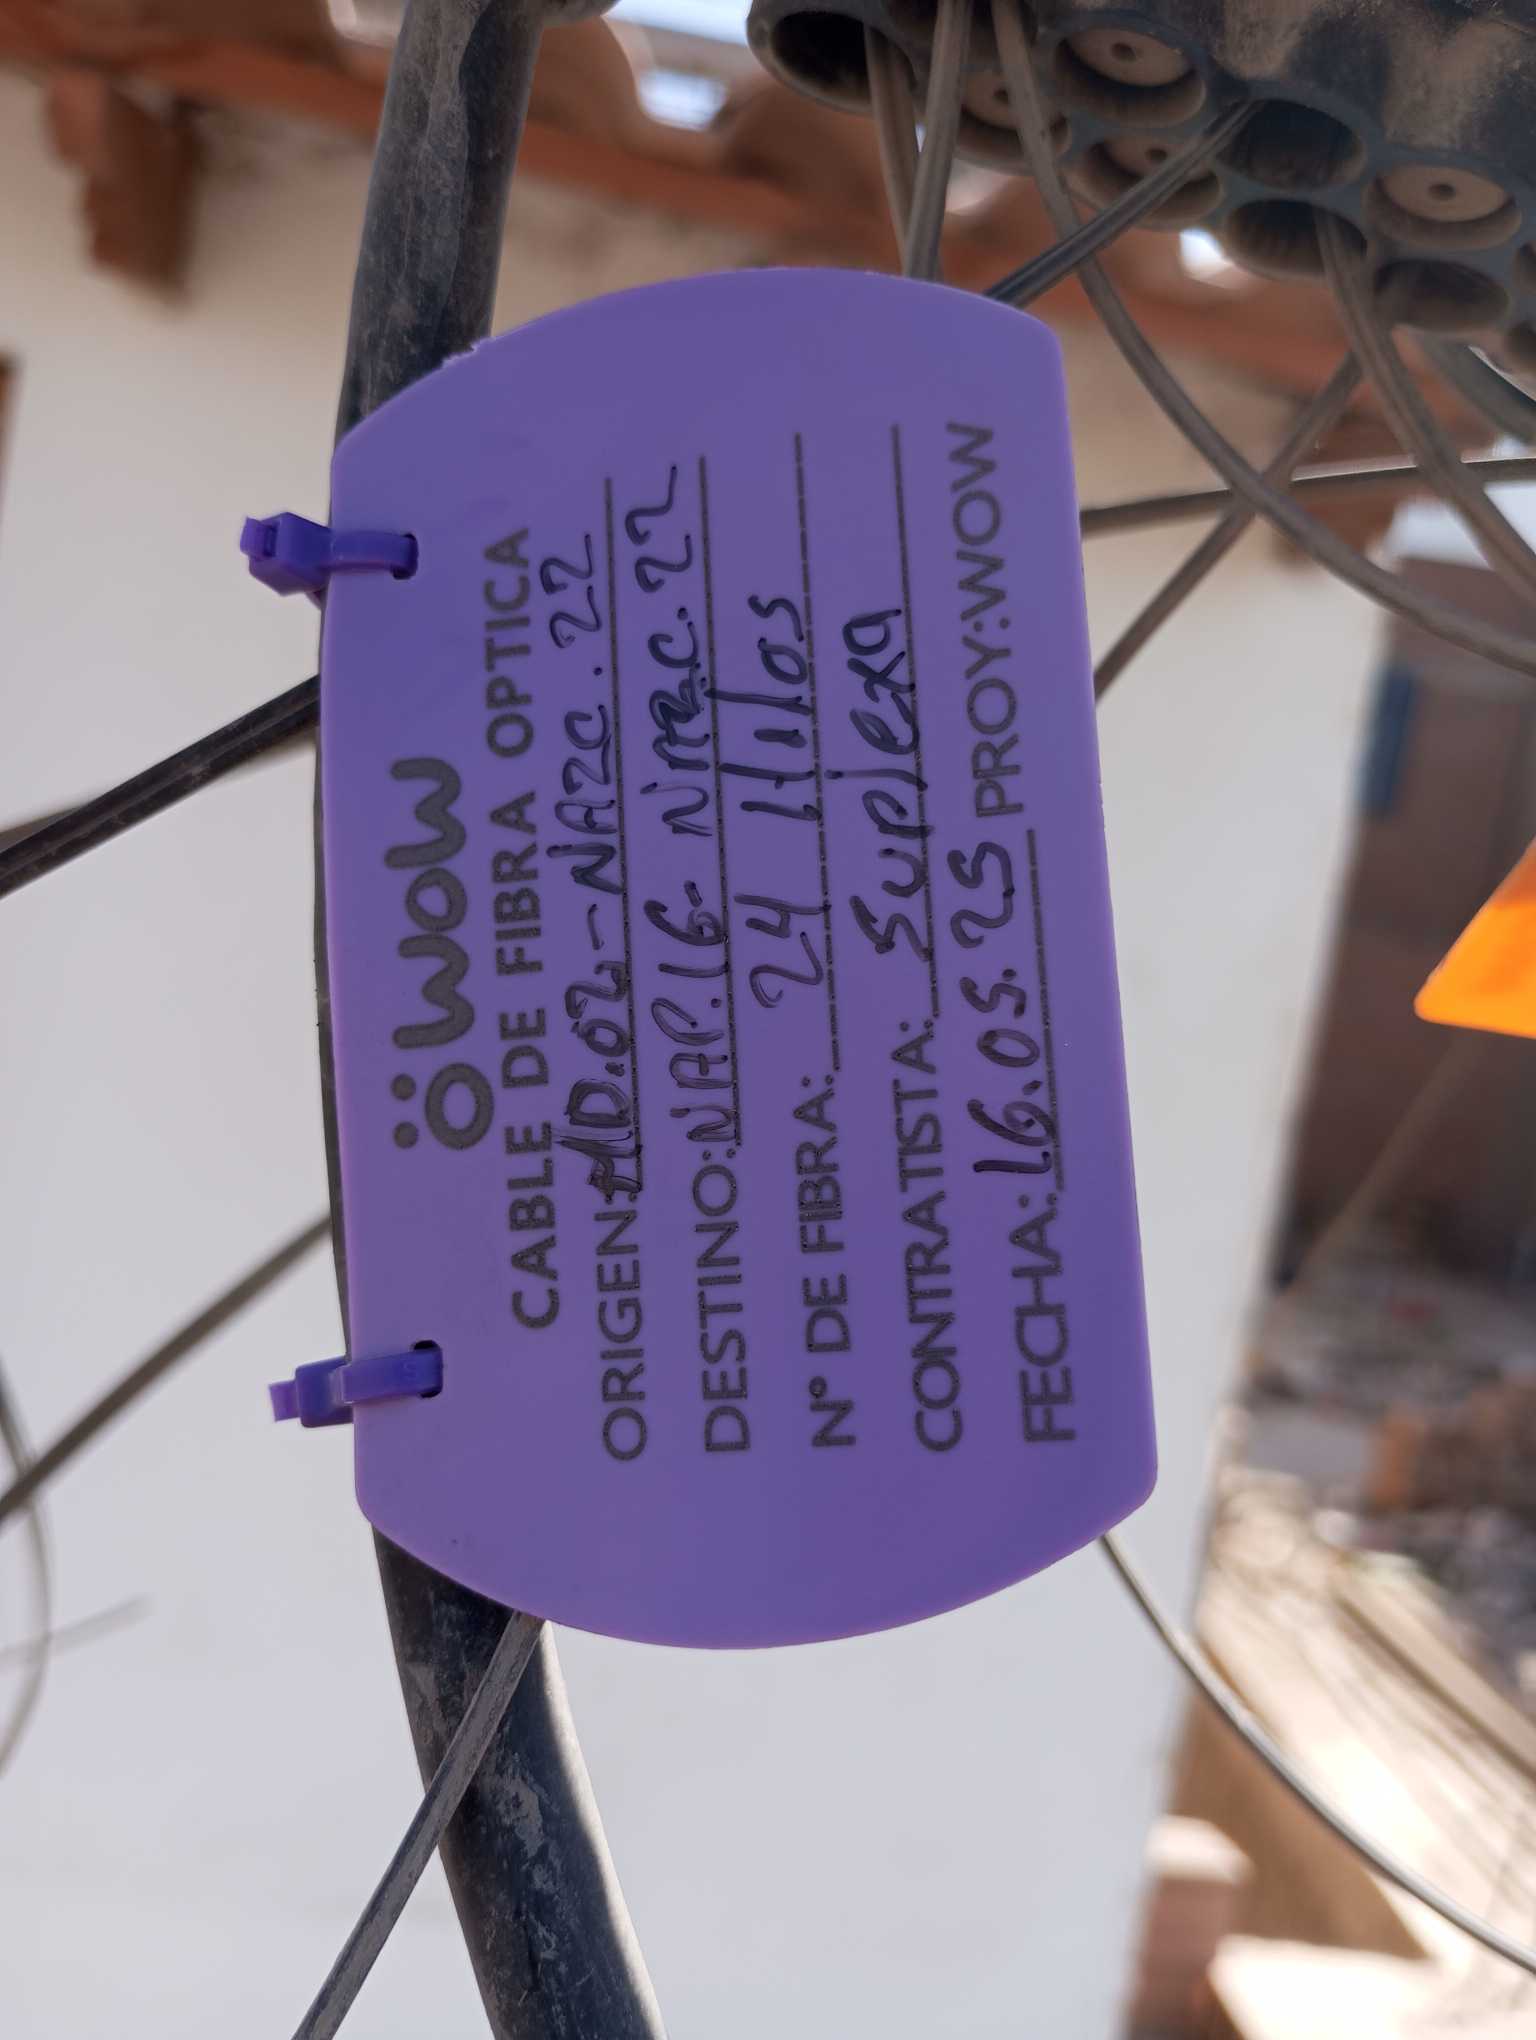 wow
CABLE DE FIBRA OPTICA
ORIGEN: AD.02-NAZC.22
DESTINO: NAP.16-NAZC.22
N° DE FIBRA: 24 Hilos
CONTRATISTA: Suplexa
FECHA: 16.05.25 PROY:WOW